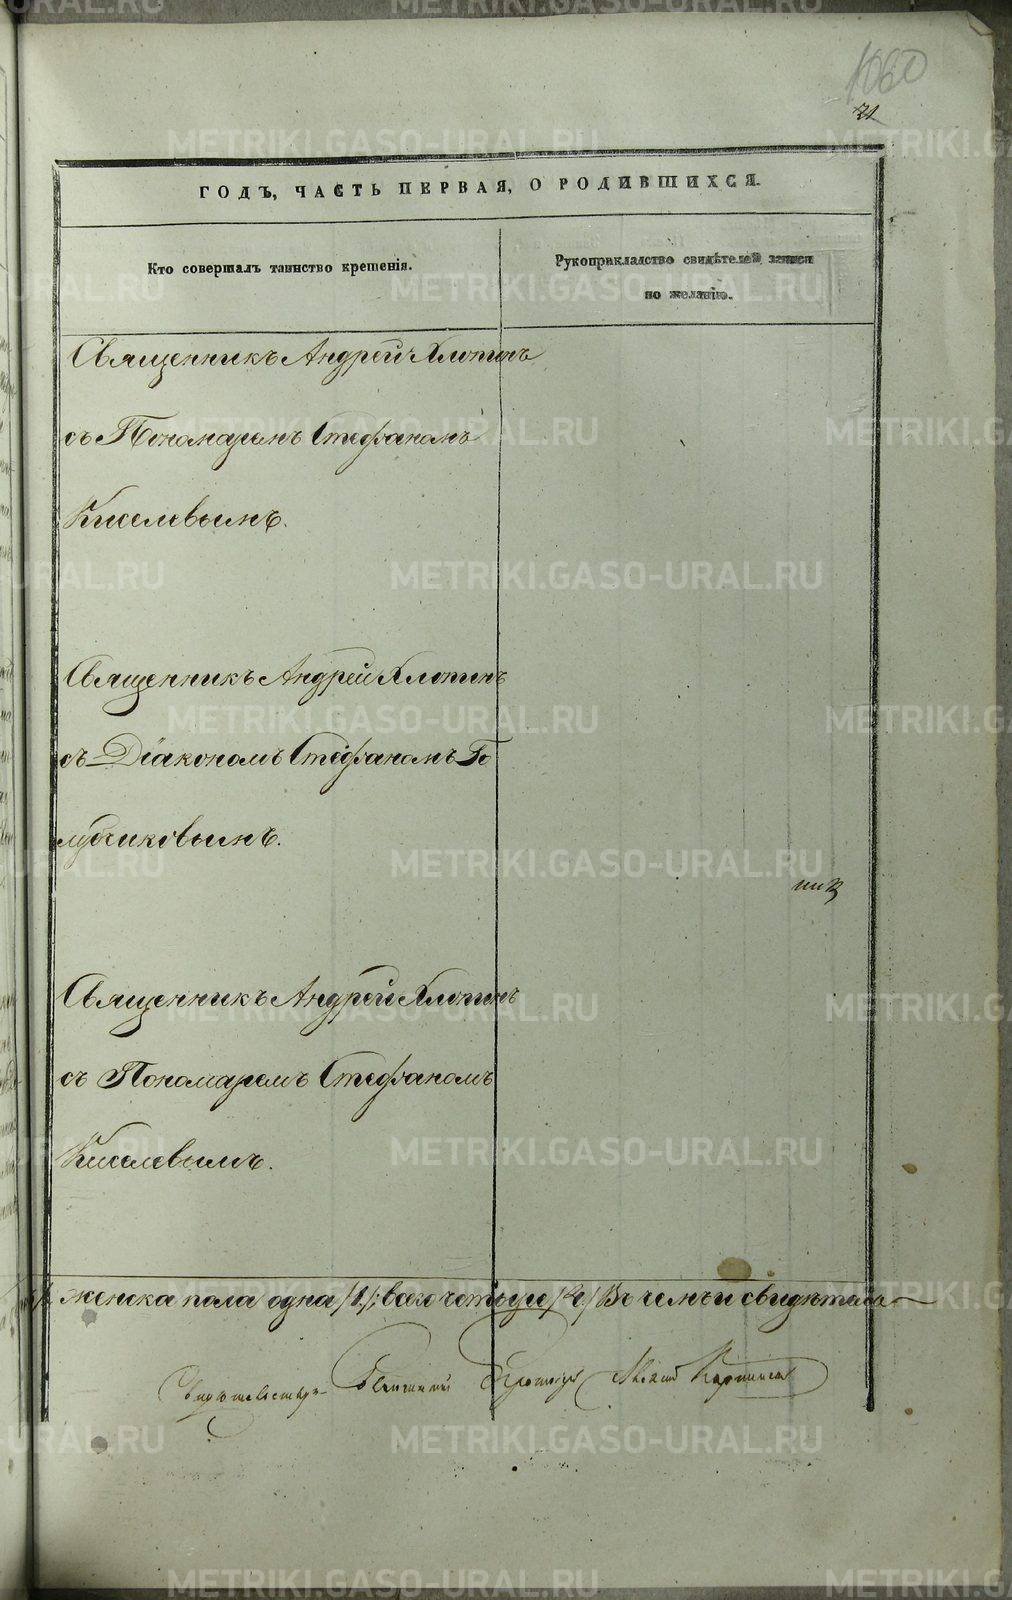 1060
21
ГОДЪ, ЧАСТЬ ПЕРВАЯ, О РОДИВШИХСЯ.
Кто совершалъ таинство крещенія.
Рукоприкладство свидѣтелей записи
по желанію.
Священникъ Андрей Хлопинъ
съ Пономаремъ Стефаномъ
Киселевымъ.
Священникъ Андрей Хлопинъ
съ Діакономъ Стефаномъ Го
лубчиковымъ.
Священникъ Андрей Хлопинъ
съ Пономаремъ Стефаномъ
Киселевымъ.
женска пола одна /1./; всего четыре /4/ Въ чемъ и свидѣтель
METRIKI.GASO-URAL.RU